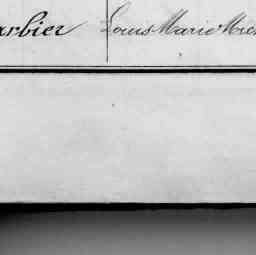 arbier Louis Marie Mic